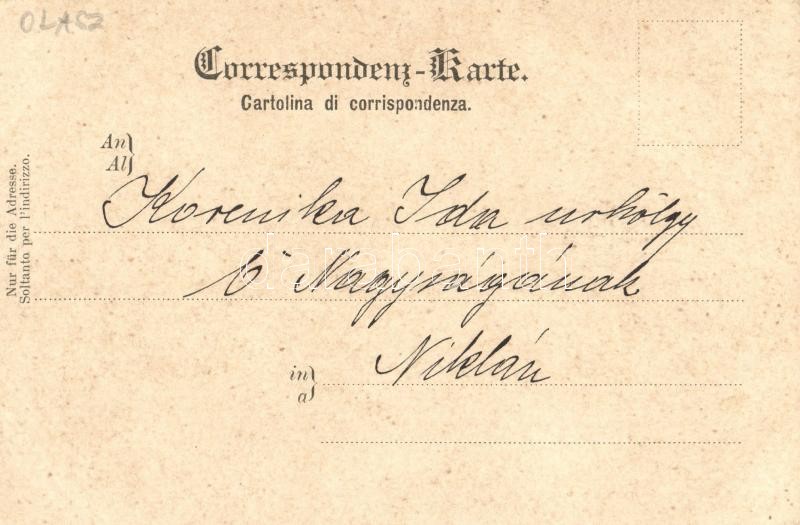 OLASZ
Correspondenz-Karte.
Cartolina di corrispondenza.
An
Al
Korenika Ida urhölgy
Ő Nagyságának
in
a
Niklán
Nur für die Adresse.
Soltanto per l'indirizzo.